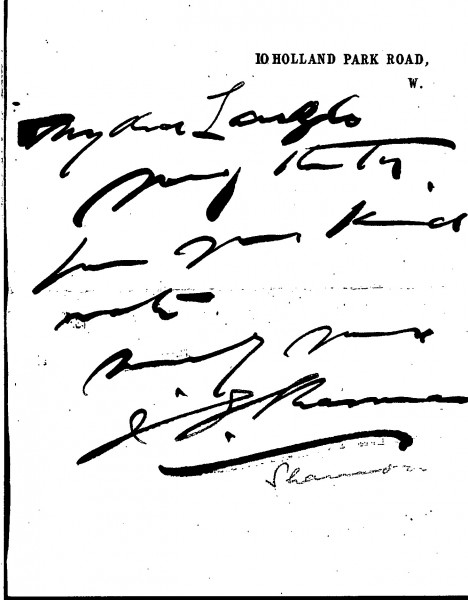 10 HOLLAND PARK ROAD,
W.
My dear Laszlo
Many thanks
for your kind
note
yours
J. J. Shannon
Shannon